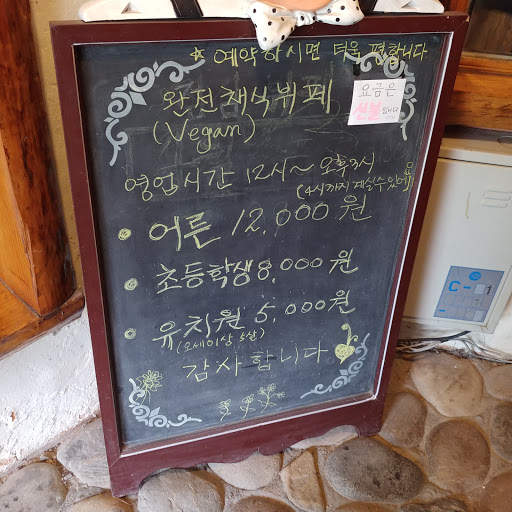 * 예약하시면 더욱 편합니다
완전채식뷔페
(Vegan)
요금은
선불입니다
영업시간 12시~오후3시
(4시까지 계실수있어요)
• 어른 12,000원
• 초등학생 8,000원
• 유치원 5,000원
(오세이상 5살)
감사합니다
C-1